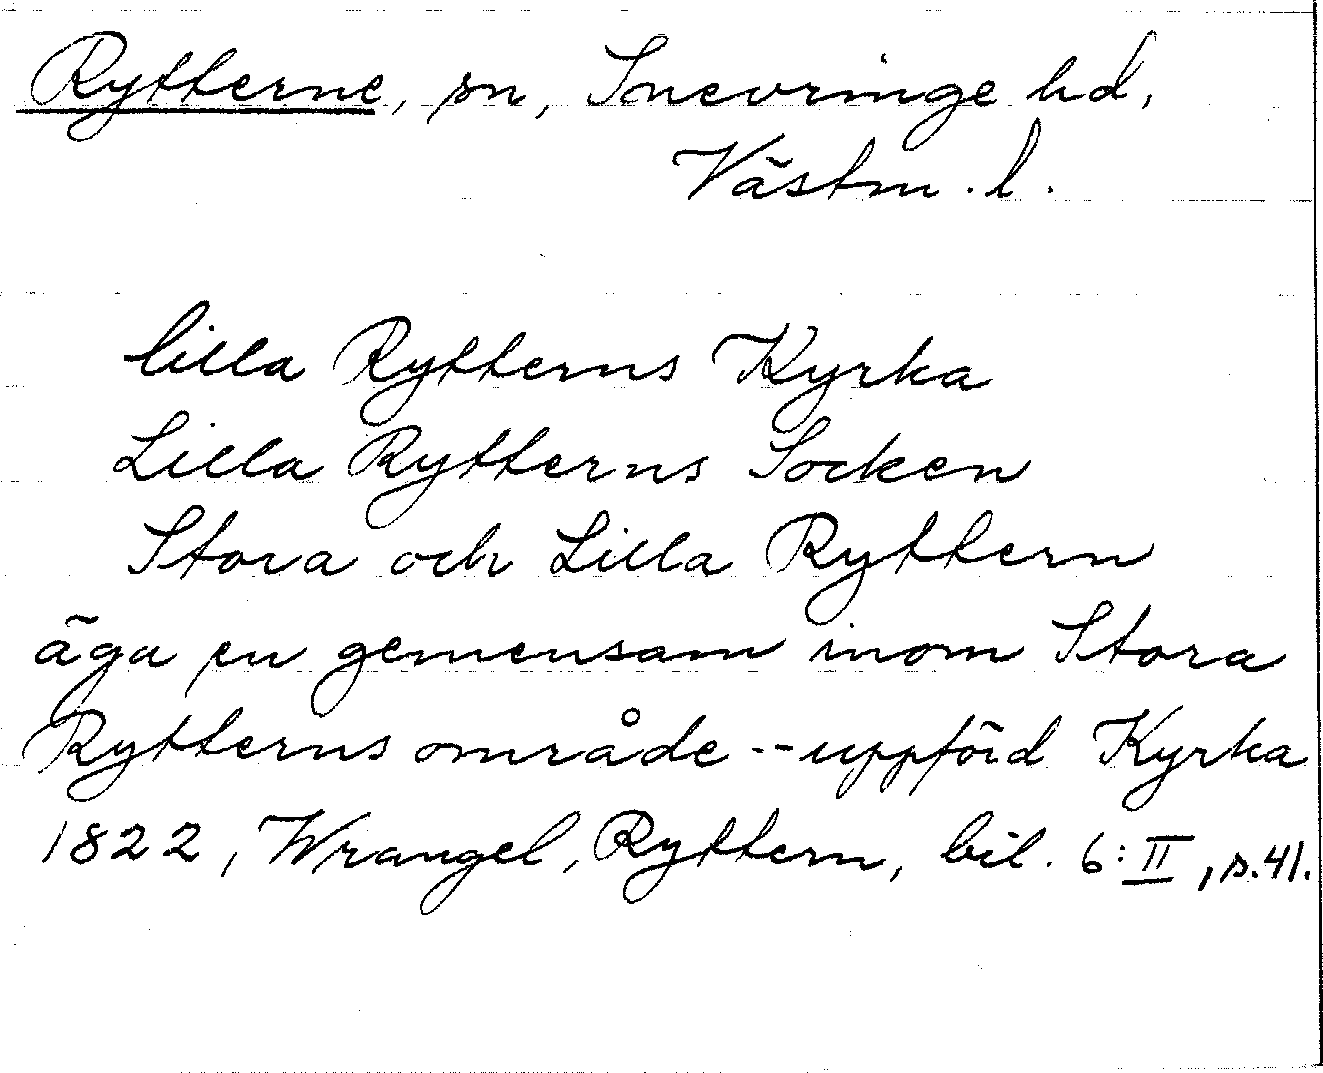 Rytterne, sn, Snevringe hd,
Västm. l.
lilla Rytterns Kyrka
Lilla Rytterns Socken
Stora och Lilla Ryttern
äga en gemensam inom Stora
Rytterns område -- uppförd Kyrka
1822, Wrangel, Ryttern, bil. 6:II, s.41.